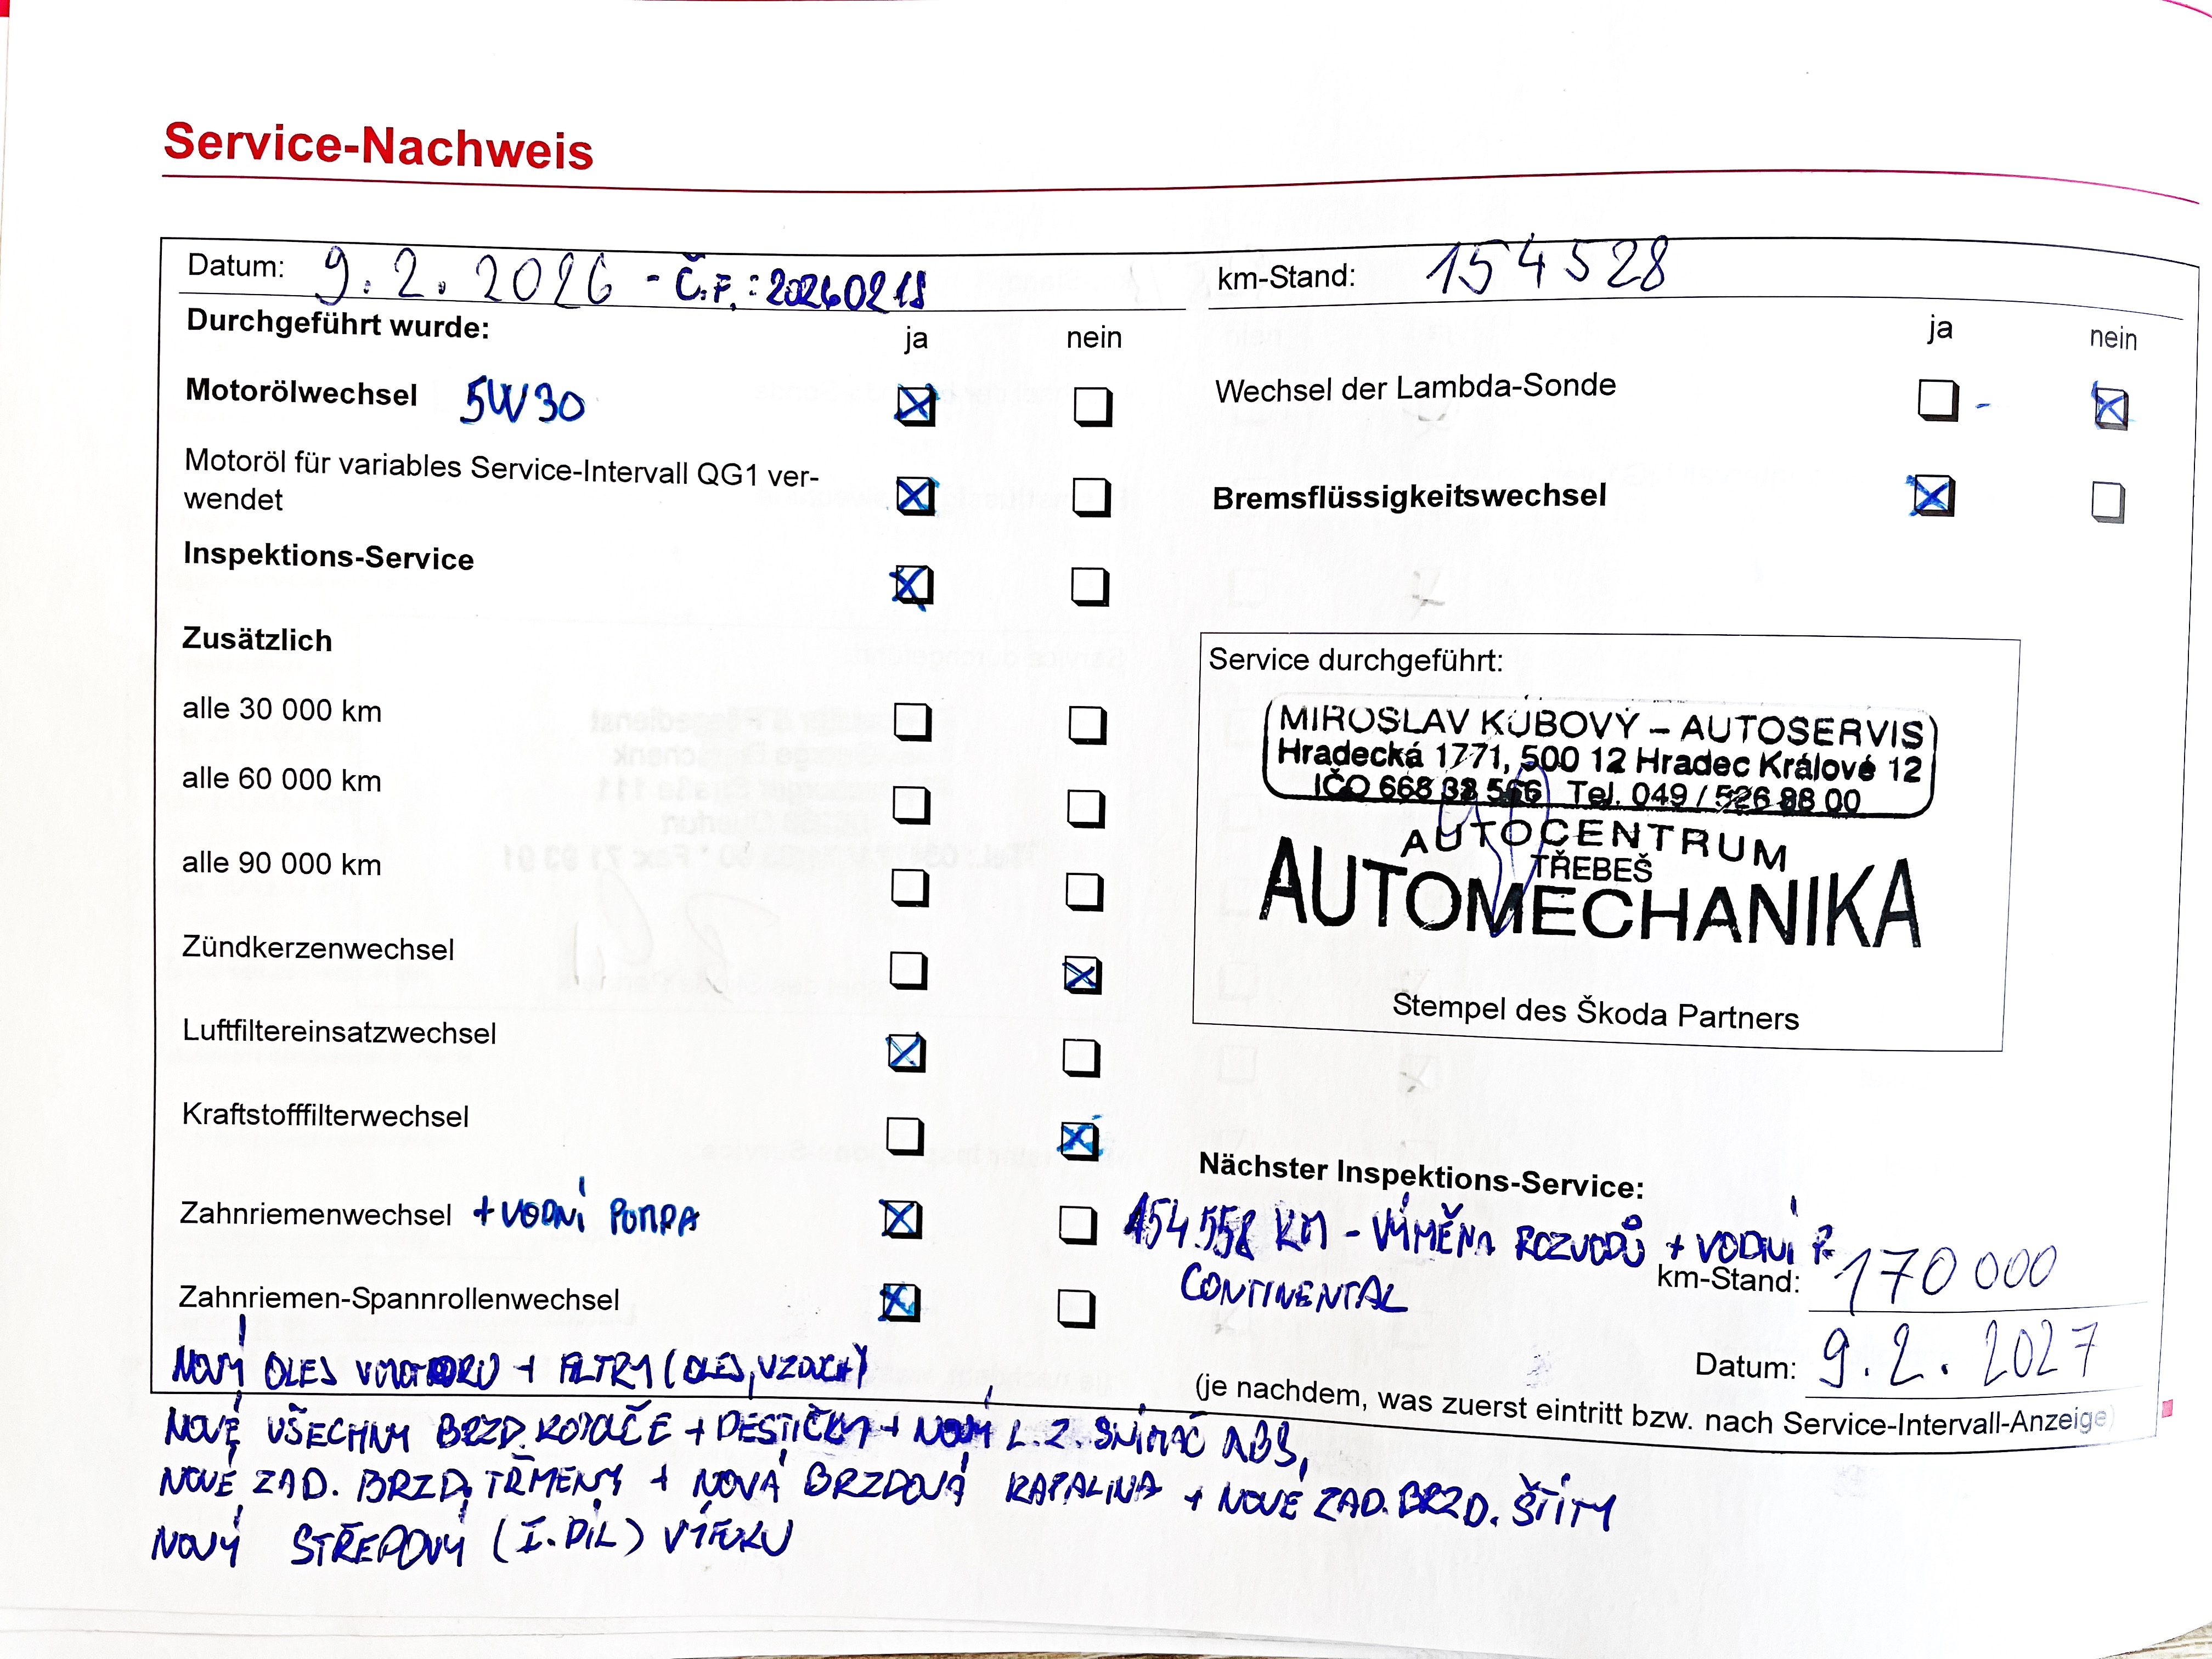 Service-Nachweis
Datum: 9.2.2026 - Č.F.: 20260218
km-Stand: 154528
Durchgeführt wurde:
ja nein
ja nein
Motorölwechsel 5W30
Wechsel der Lambda-Sonde
Motoröl für variables Service-Intervall QG1 ver-
wendet
Bremsflüssigkeitswechsel
Inspektions-Service
Zusätzlich
alle 30 000 km
alle 60 000 km
alle 90 000 km
Zündkerzenwechsel
Luftfiltereinsatzwechsel
Kraftstofffilterwechsel
Zahnriemenwechsel + VODNÍ POMPA
Zahnriemen-Spannrollenwechsel
Service durchgeführt:
MIROSLAV KUBOVÝ – AUTOSERVIS
Hradecká 1771, 500 12 Hradec Králové 12
IČO 668 38 566 Tel. 049 / 526 88 00
AUTOCENTRUM
TŘEBEŠ
AUTOMECHANIKA
Stempel des Škoda Partners
Nächster Inspektions-Service:
154 558 KM - VÝMĚNA ROZVODŮ + VODNÍ P.
CONTINENTAL
km-Stand: 170 000
Datum: 9.2.2027
(je nachdem, was zuerst eintritt bzw. nach Service-Intervall-Anzeige)
NOVÝ OLEJ V MOTORU + FILTRY (OLEJ, VZDUCH)
NOVÉ VŠECHNY BRZD. KOTOUČE + DESTIČKY + NOVÝ L.Z. SNÍMAČ ABS,
NOVÉ ZAD. BRZD. TŘMENY + NOVÁ BRZDOVÁ KAPALINA + NOVÉ ZAD. BRZD. ŠTÍTY
NOVÝ (I. DÍL) VÝFUKU